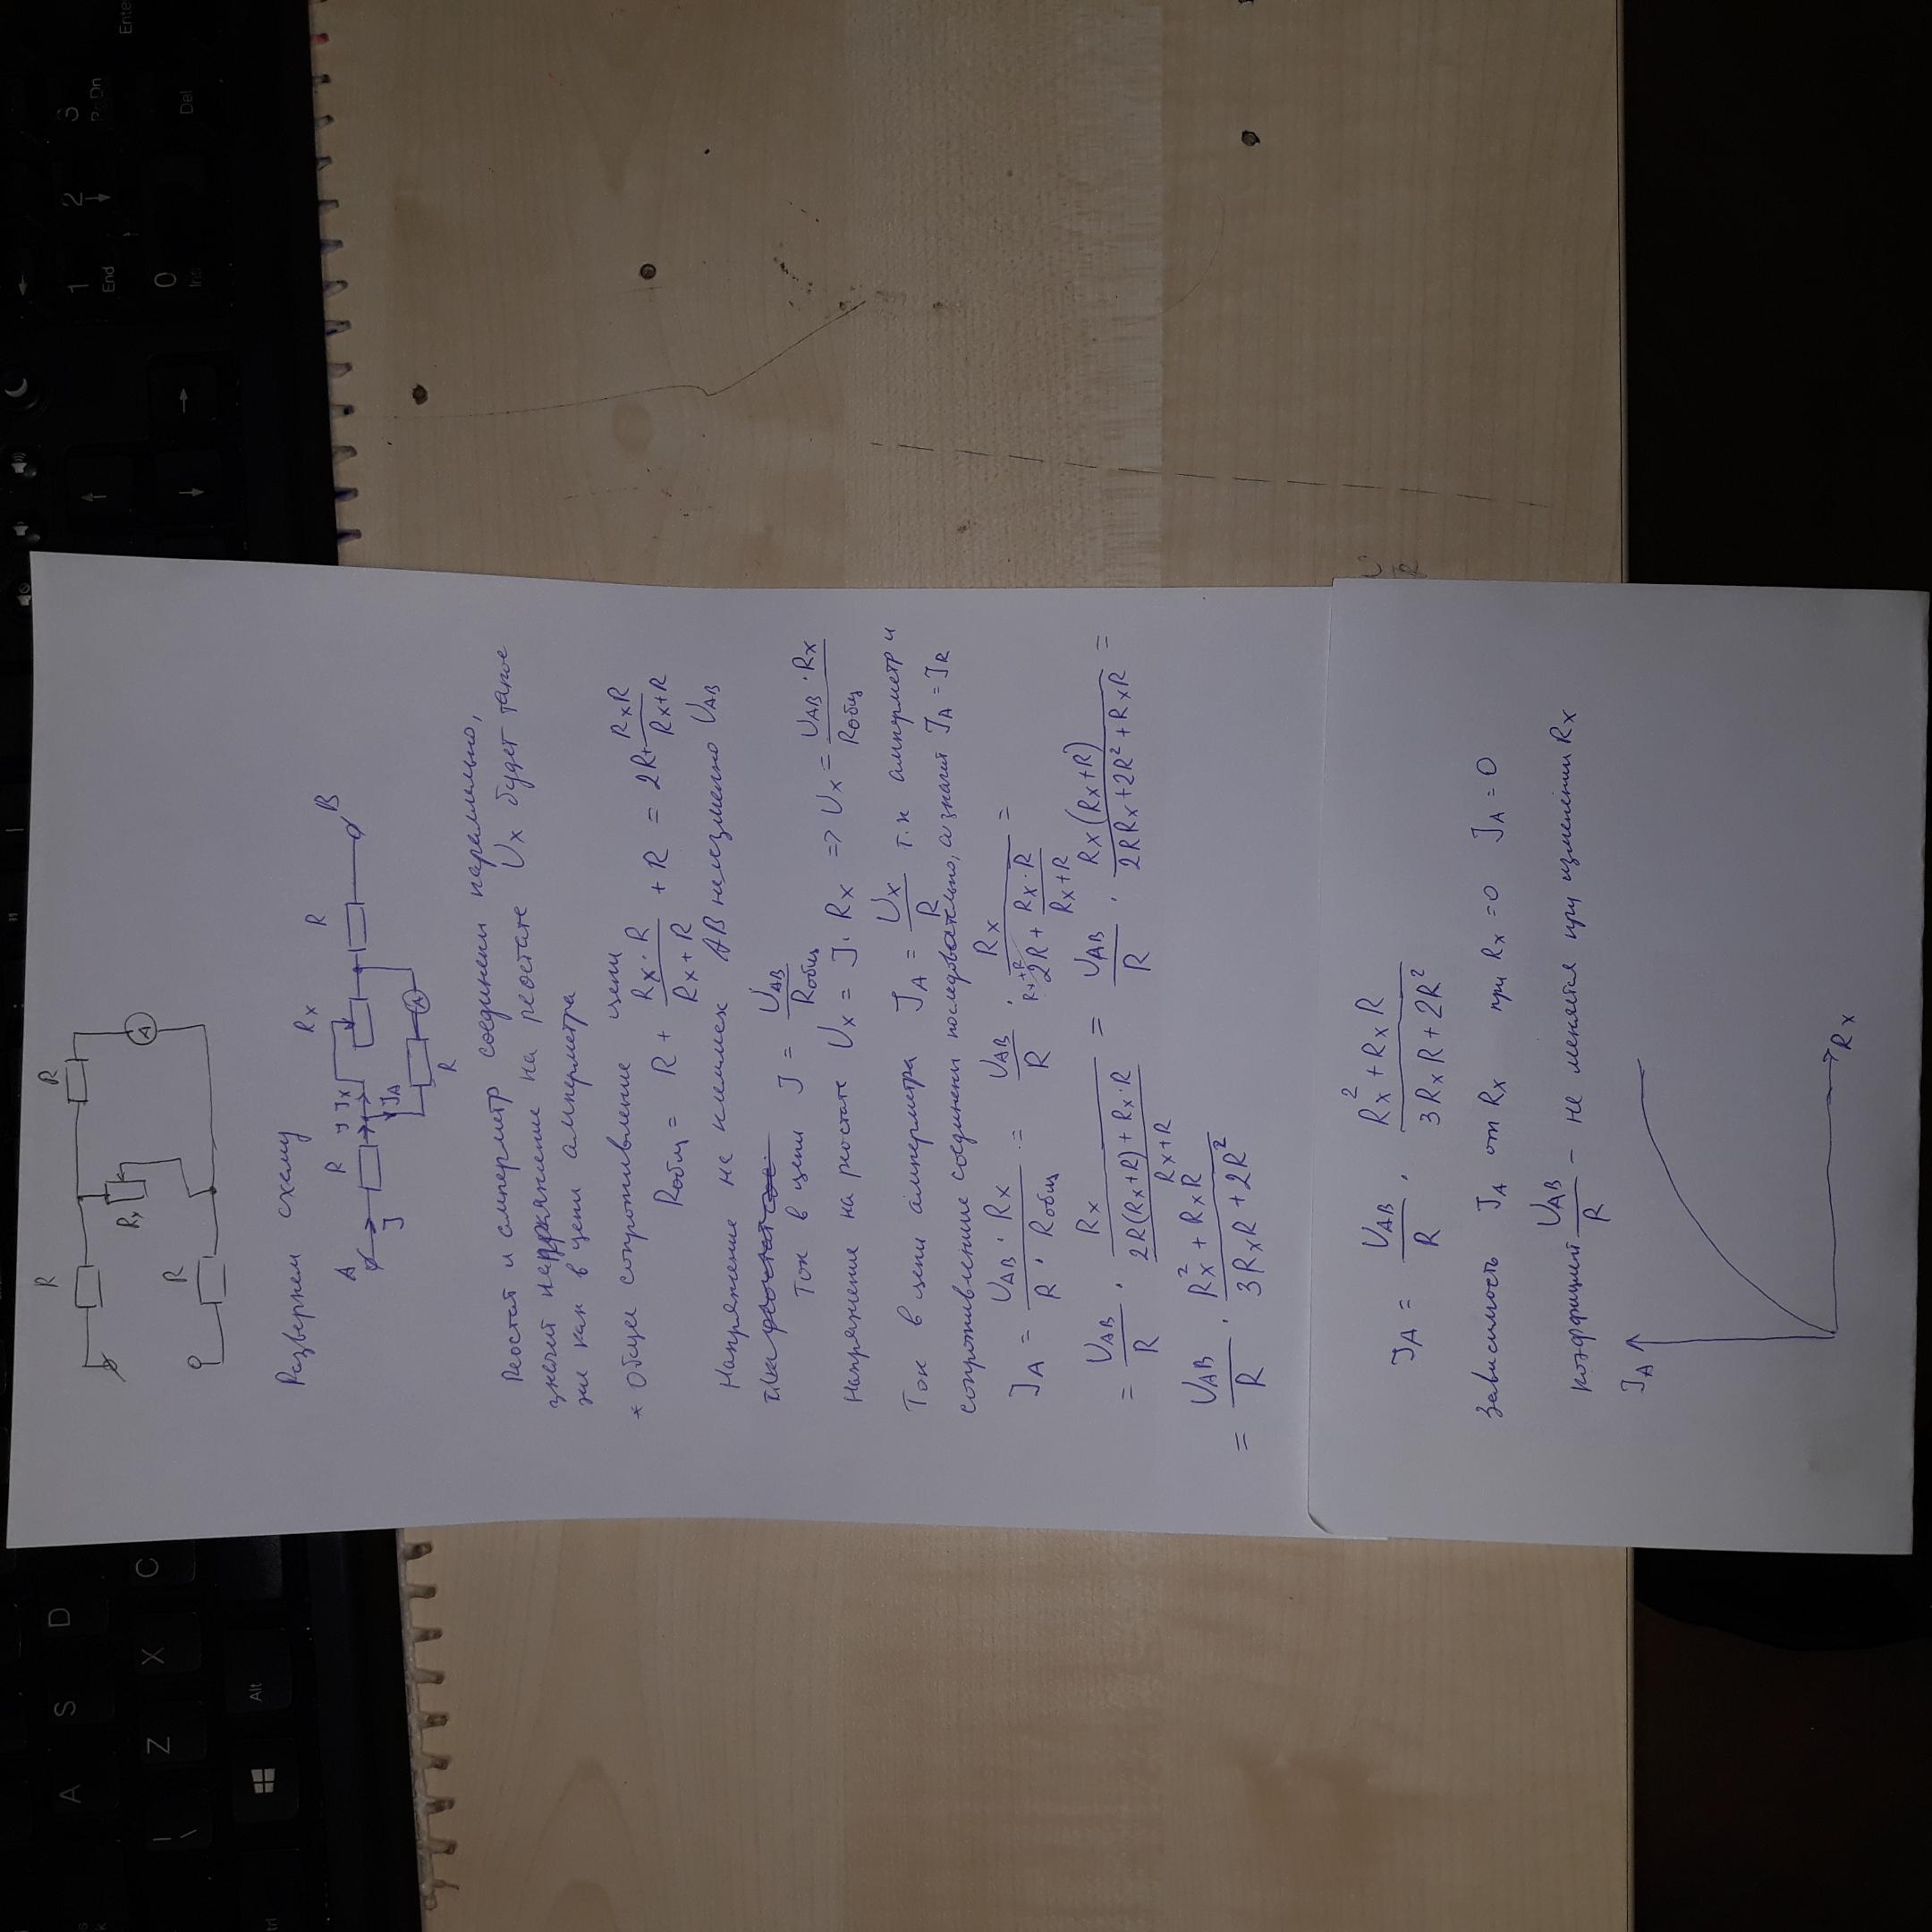 R
R
Rx
R
A
Развернем схему
A
R
J
Jx
JA
Rx
R
B
A
R
Реостат и амперметр соединены паралельно,
значит напряжение на реостате Ux будет такое
же как в цепи амперметра
* Общее сопротивление цепи
Rобщ = R + Rx · R / Rx + R + R = 2R + RxR / Rx+R
Напряжение на клеммах AB неизменно UAB
Ток в цепи J = UAB / Rобщ
Напряжение на реостате Ux = J · Rx => Ux = UAB · Rx / Rобщ
Ток в цепи амперметра JA = Ux / R т.к амперметр и
сопротивление соединены последовательно, а значит JA = JR
JA = UAB · Rx / R · Rобщ = UAB / R · Rx / 2R + Rx · R / Rx+R =
= UAB / R · Rx / 2R(Rx+R) + Rx·R / Rx+R = UAB / R · Rx(Rx+R) / 2RRx + 2R² + RxR =
= UAB / R · Rx² + RxR / 3RxR + 2R²
JA = UAB / R · Rx² + RxR / 3RxR + 2R²
Зависимость JA от Rx при Rx = 0 JA = 0
коэффициент UAB / R - не меняется при изменении Rx
JA
Rx
A
S
D
Z
X
C
Alt
\
|
End
1
2
3
Pg Dn
0
Ins
Del
Enter